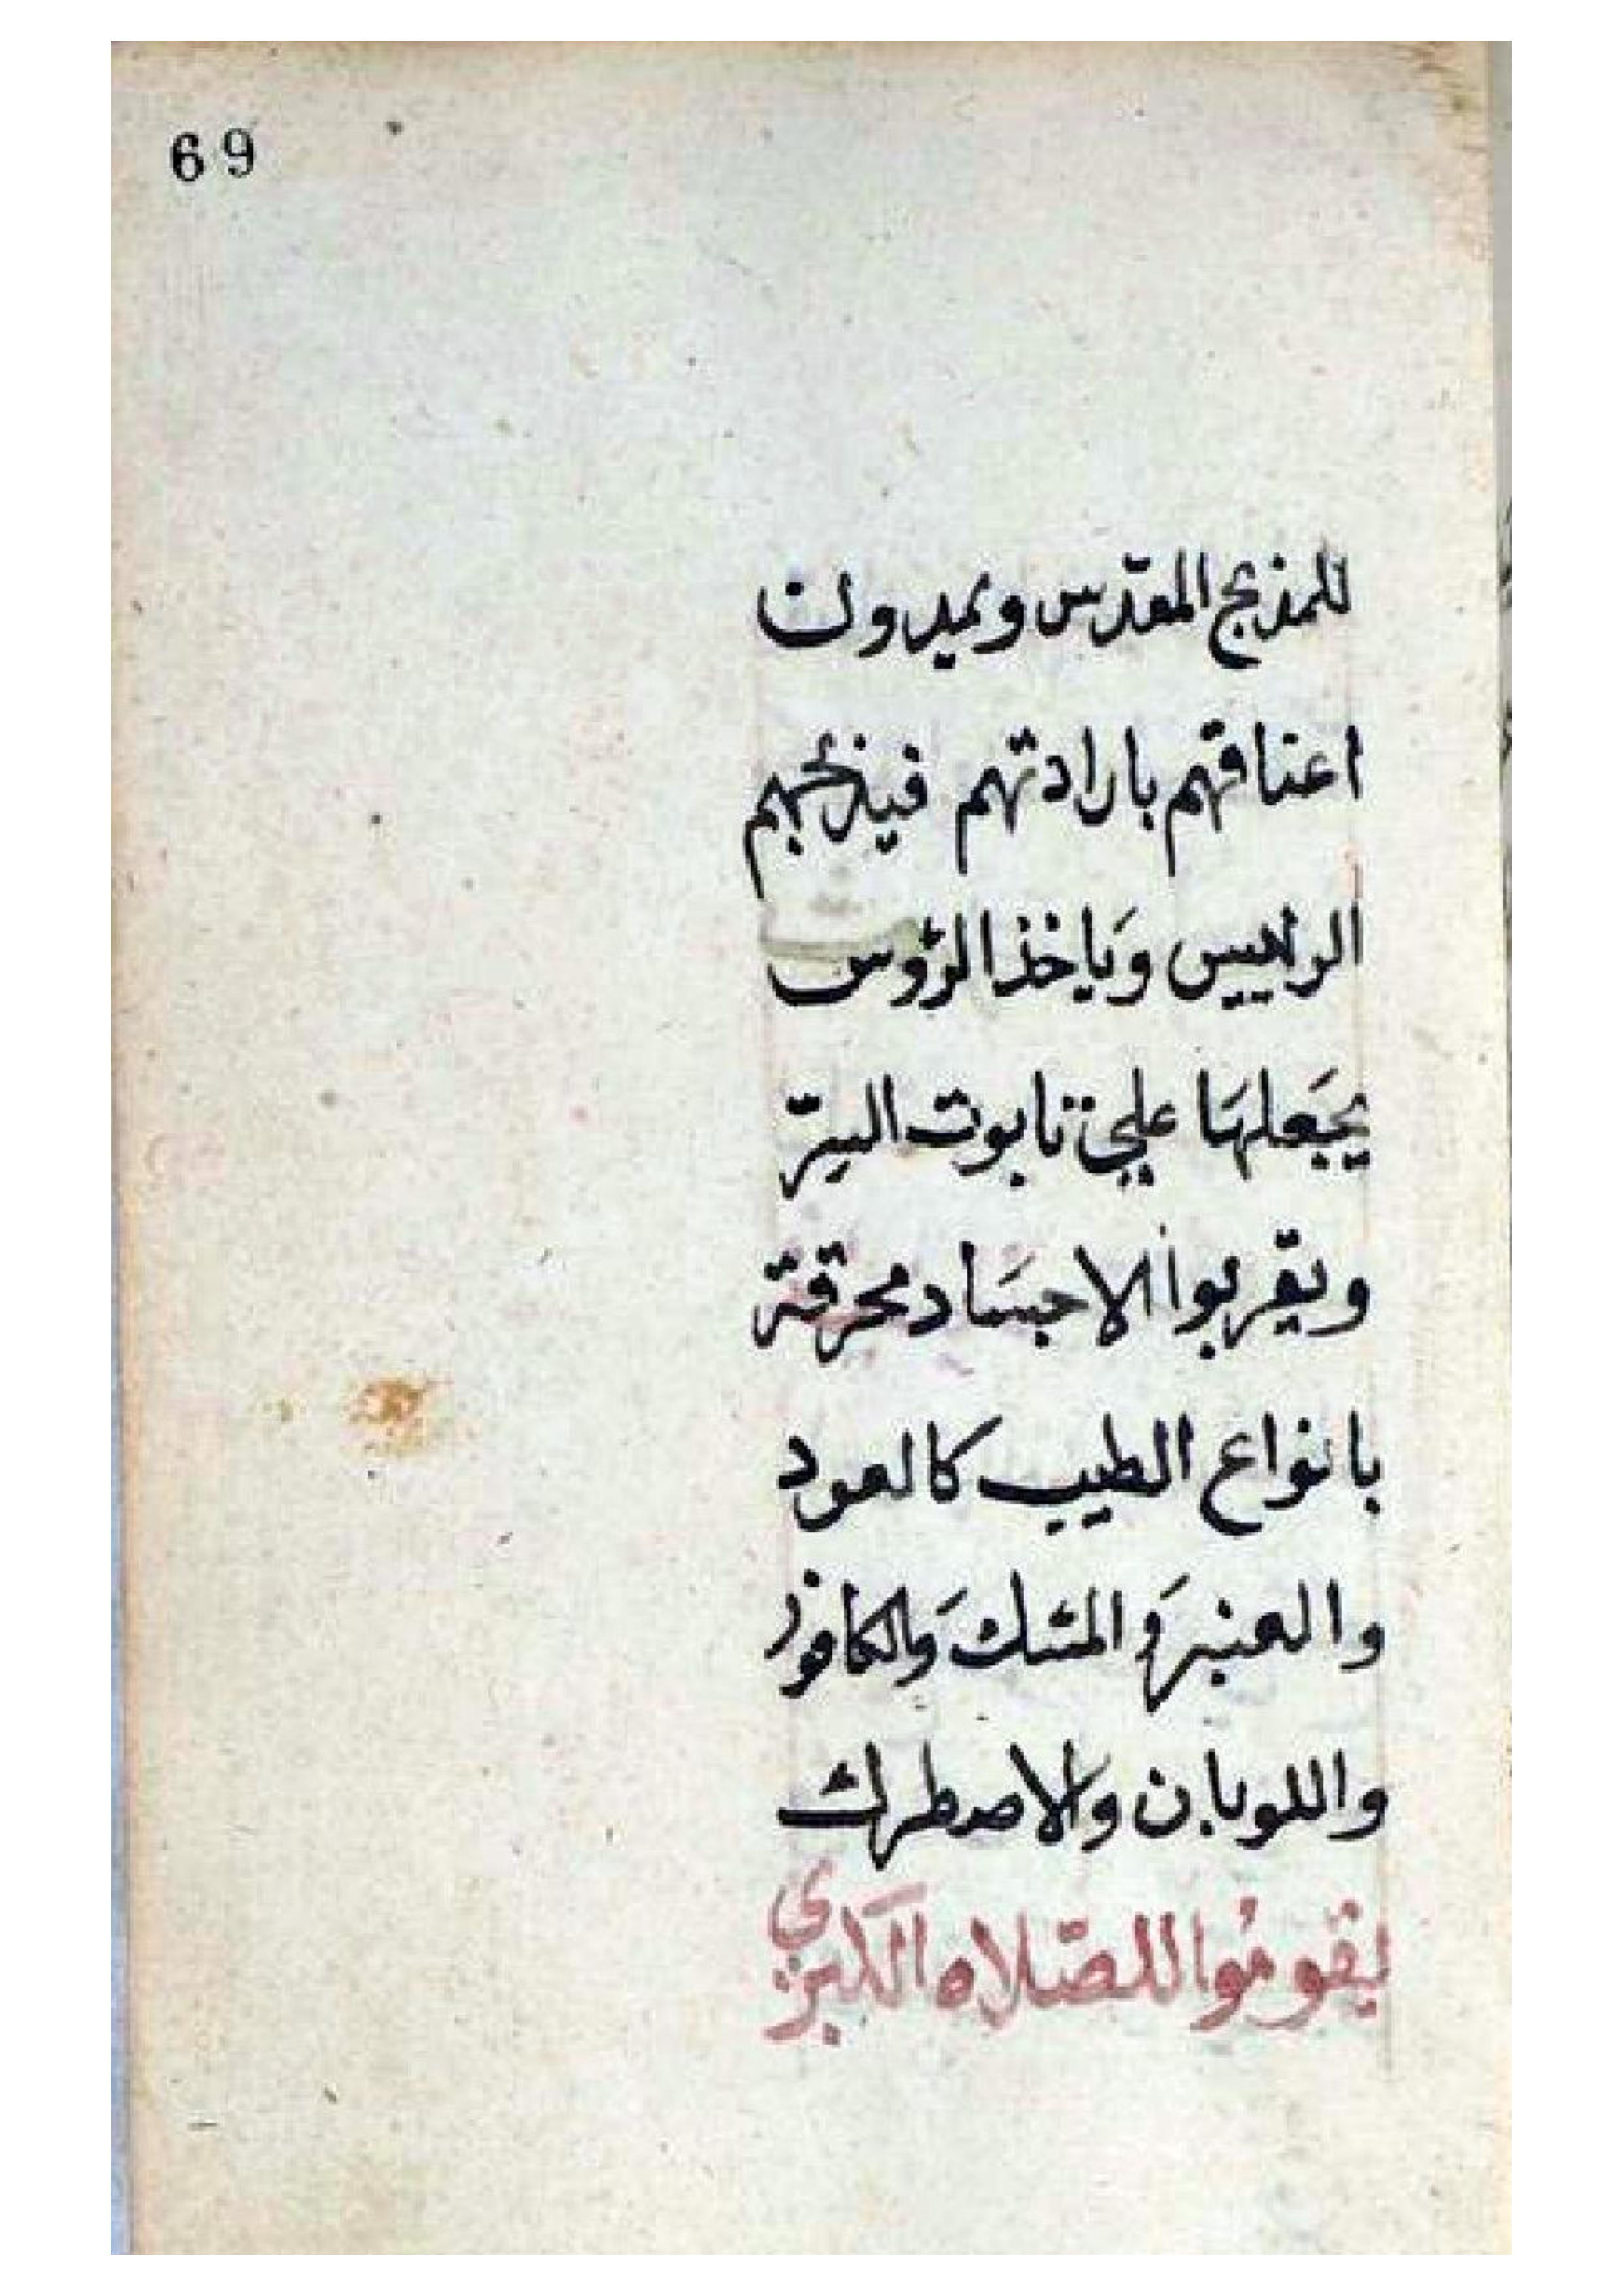 69
للمذبح المقدس ويميدون
اعناقهم بارادتهم فيذبحهم
الرئييس وَياخذ الرؤوس
يجَعلهَا علي تابوت السرّ
ويقربوا الاجسَاد محرقة
بانواع الطيب كالعود
والعنبر وَالمسك وَالكافور
واللوبان والاصطرك
يقومُوا للصّلاه الكبري